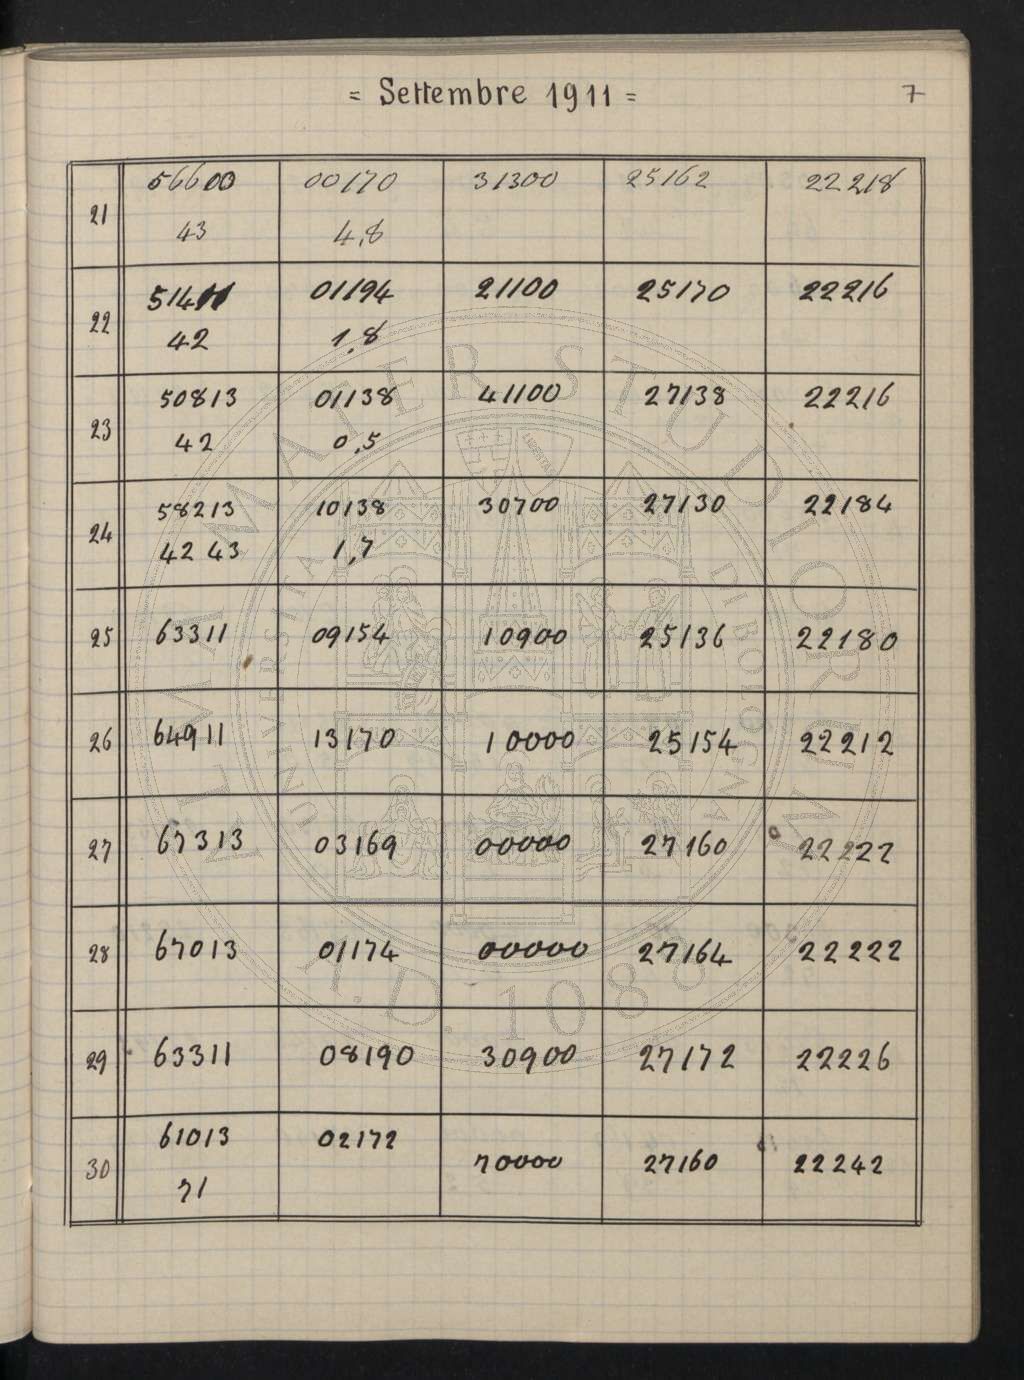 = Settembre 1911 =
7
21 56600 00170 31300 25162 22218
43 4,8
22 51411 01194 21100 25170 22216
42 1,8
23 50813 01138 41100 27138 22216
42 0,5
24 58213 10138 30700 27130 22184
42 43 1,7
25 63311 09154 10900 25136 22180
26 64911 13170 10000 25154 22212
27 67313 03169 00000 27160 22222
28 67013 01174 00000 27164 22222
29 63311 08190 30900 27172 22226
30 61013 02172 70000 27160 22242
71
ALMA MATER STUDIORUM
UNIVERSITA DI BOLOGNA
A.D. 1088